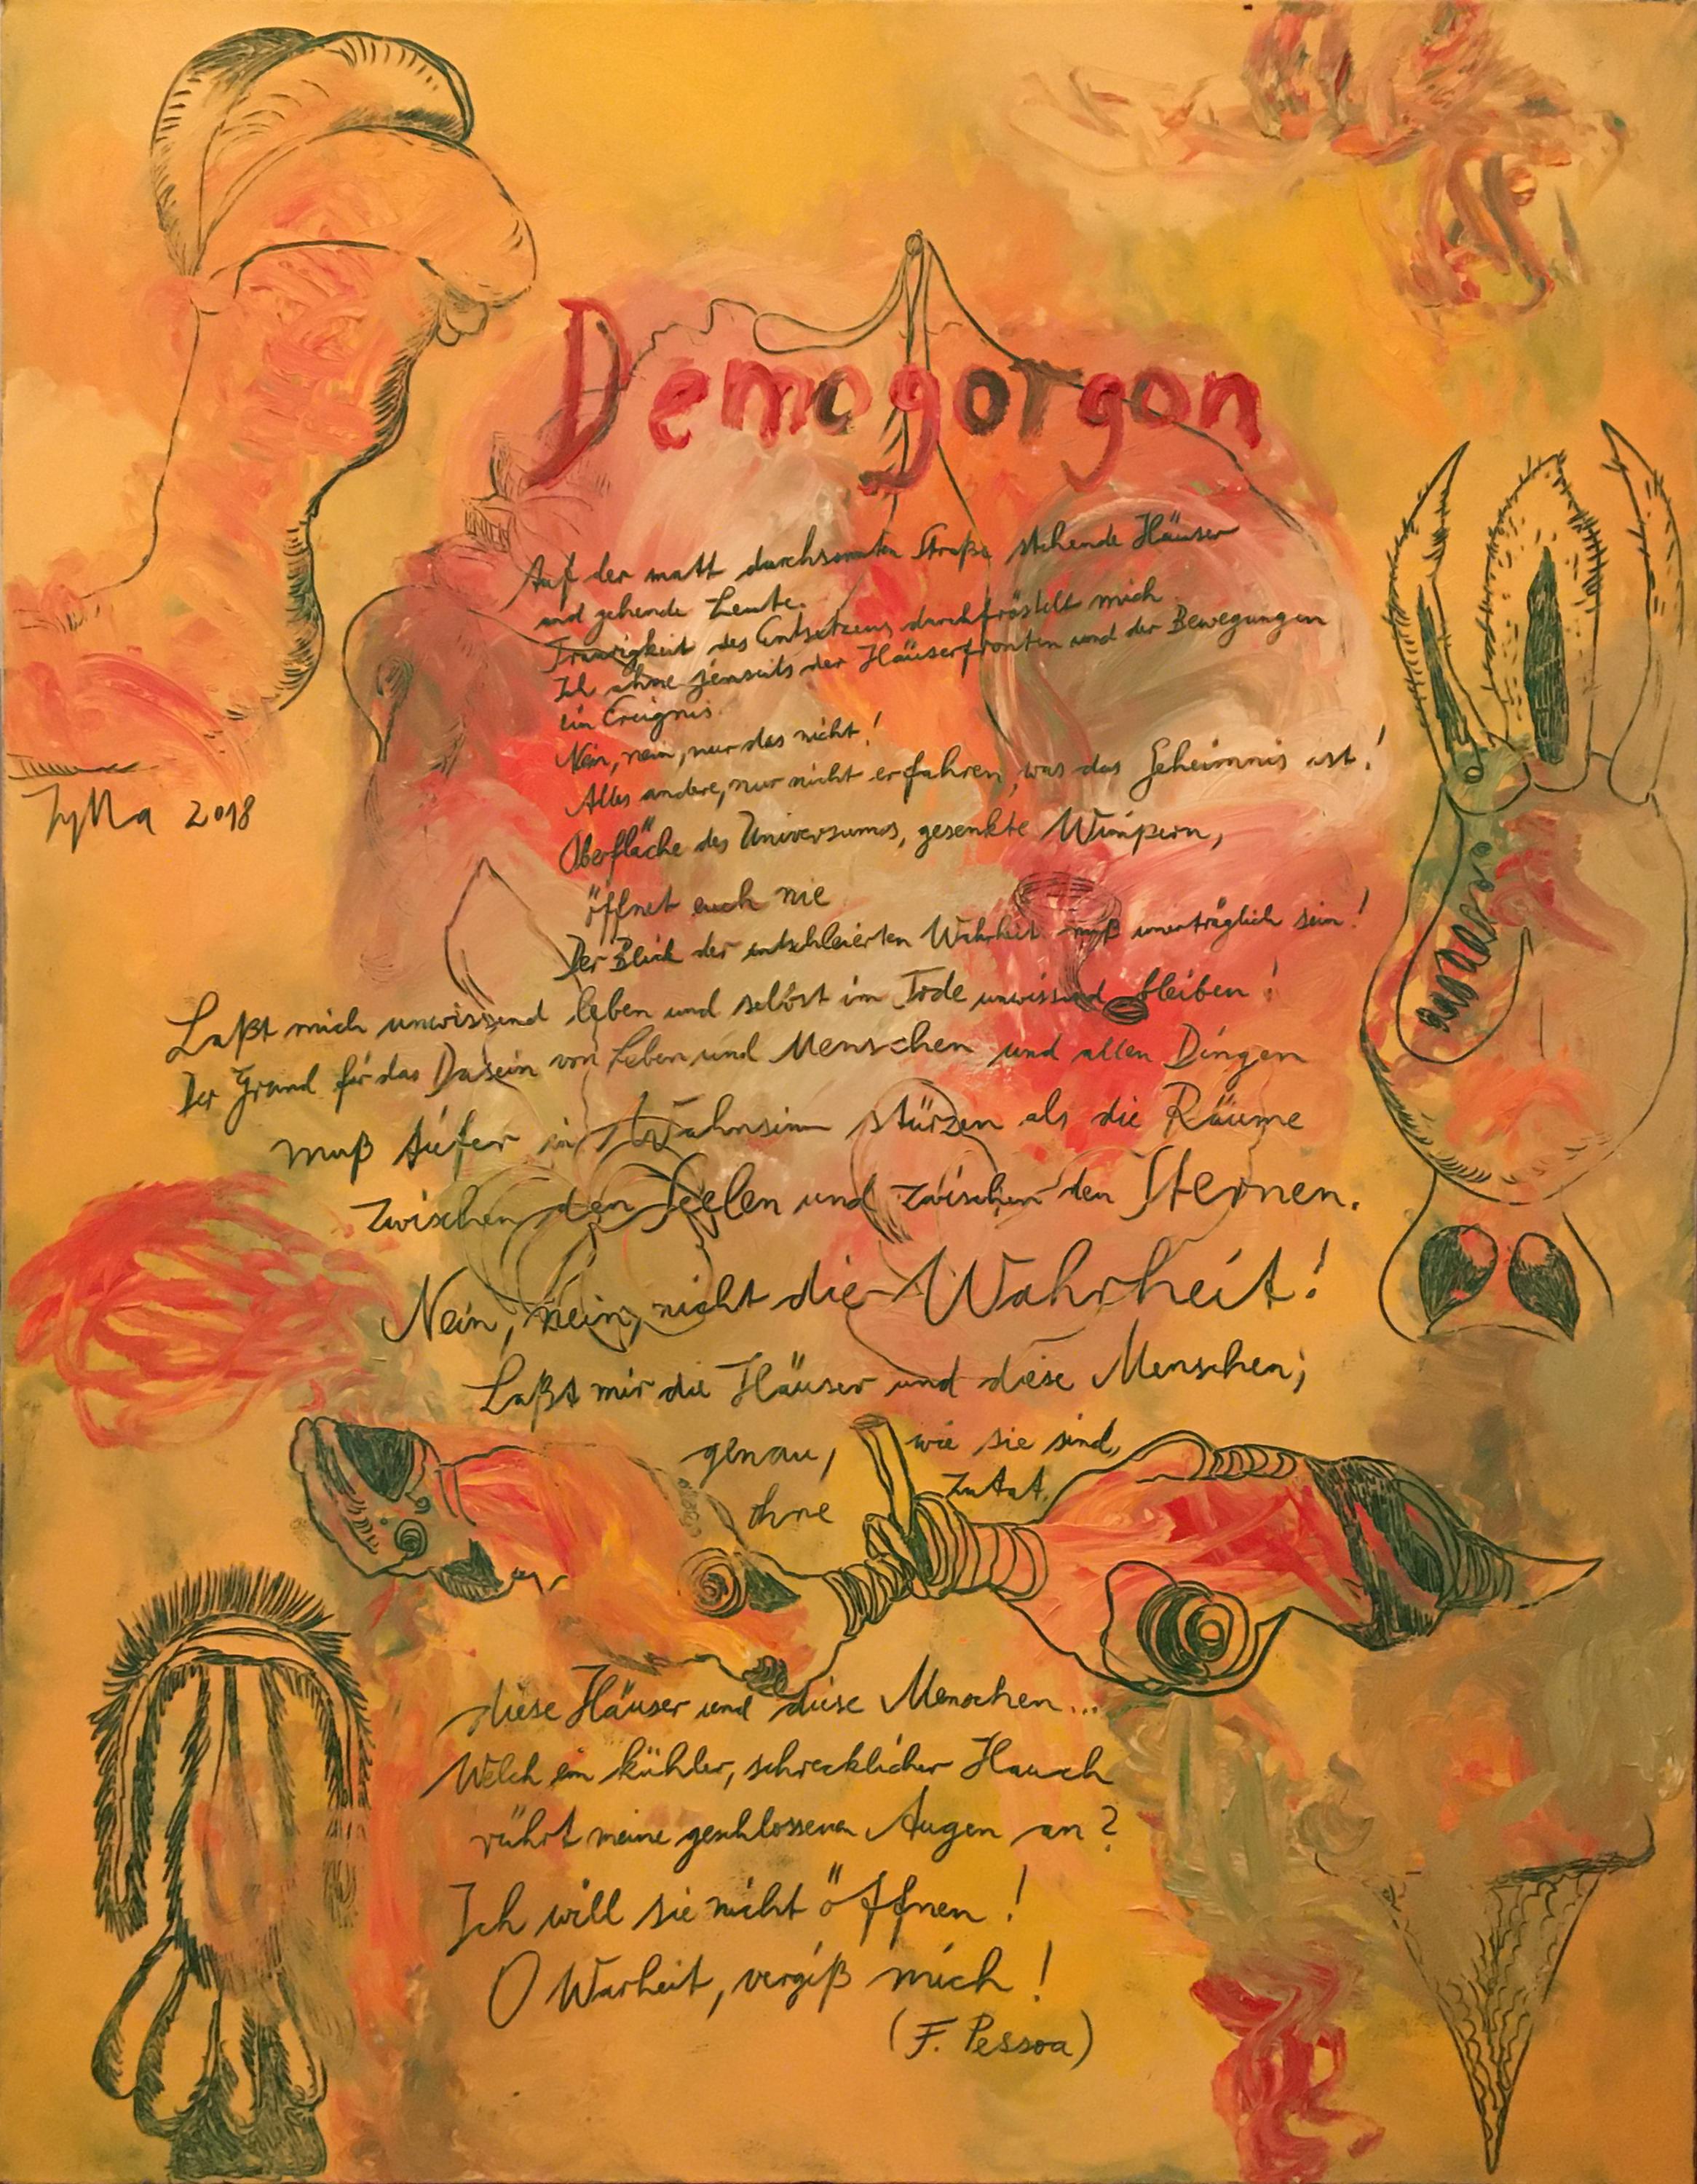 Demogorgon
Auf der matt durchsonnten Straße stehende Häuser
und gehende Leute.
Traurigkeit des Entsetzens durchfröstelt mich
Ich ahne jenseits der Häuserfronten und der Bewegungen
ein Ereignis.
Nein, nein, nur das nicht!
Alles andere, nur nicht erfahren, was das Geheimnis ist!
Oberfläche des Universums, gesenkte Wimpern,
öffnet euch nie
Der Blick der entschleierten Wahrheit muß unerträglich sein!
Laßt mich unwissend leben und selbst im Tode unwissend bleiben!
Der Grund für das Dasein von Leben und Menschen und allen Dingen
muß tiefer in Wahnsinn stürzen als die Räume
zwischen den Seelen und zwischen den Sternen.
Nein, nein, nicht die Wahrheit!
Laßt mir die Häuser und diese Menschen,
genau, wie sie sind,
ohne Zutat.
diese Häuser und diese Menschen...
Welch ein kühler, schrecklicher Hauch
rührt meine geschlossenen Augen an?
Ich will sie nicht öffnen!
O Warheit, vergiß mich!
(F. Pessoa)
Zylla 2018